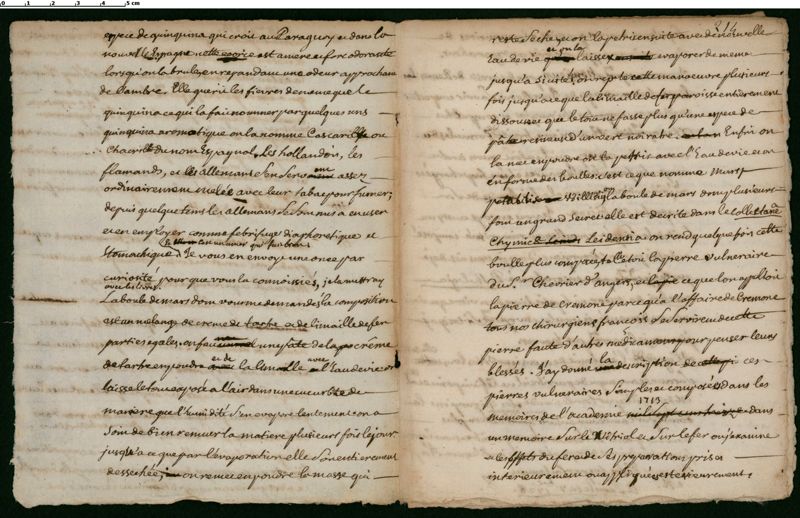 0 1 2 3 4 5 cm
espece de quinquina qui croit au Paraguay et dans la
nouvelle Espagne cette ecorce est amere et fort odorante
lorsqu'on la brule, en repandant une odeur approchant
de l'ambre. Elle guerit les fievres de meme que le
quinquina ce qui la fait nommer par quelques uns
quinquina aromatique on la nomme Cascarille ou
Chacrille du nom Espagnol, les hollandois, les
flamands, et les allemans s'en servent assez
ordinairement melée avec leur tabac pour fumer,
depuis quelque tems les allemans se sont mis a en user
et en employer comme febrifuge diaphoretique et
Stomachique Je vous en envoy une once par
curiosité pour que vous la connoissiés, je la mettray
La boule de mars dont vous me demandes la composition
est un melange de creme de tartre et de limaille de fer
parties egales. on feu une pate de la creme
de tartre en poudre et de la limaille avec l'Eau de vie on
laisse le tout exposé a l'air dans une cucurbite de
maniere que l'humidité s'en evapore lentement on a
soin de bien remuer la matiere plusieurs fois le jour
jusqu'a ce que par l'évaporation elle soit entierement
dessechée, on remet en poudre la masse qui
214
reste seche, et on la petrit ensuite avec de nouvelle
Eau de vie et on la laisse evaporer de meme
jusqu'a siccité, on repete cette manœuvre plusieurs
fois jusqu'a ce que la limaille de fer paroisse entierement
dissoute et que le tout ne fasse plus qu'une espece de
pâte resineuse d'un vert noiratre. Enfin on
la met en poudre on la petrit avec l'Eau de vie et on
en forme des boules: c'est ce que nomme Mars
potabilis Willis la boule de mars dont plusieurs
font un grand secret elle est decrite dans le Collectanea
Chymica Leidensia on rend quelque fois cette
boulle plus composée telle est la pierre vulneraire
du Sr. Chevrier d'angers, et ce que l'on appelloit
la pierre de Cremone parce qu'a l'affaire de Cremone
tous nos chirurgiens francois se servirent de cette
pierre faute d'autre medicament pour penser leurs
blessés. J'ay donné la description de ces
pierres vulneraires simples et composées dans les
memoires de l'academie 1713 dans
un memoire sur le Vitriol et sur le fer ou j'examine
les effets du fer et de ses preparations pris
interieurement ou appliqués exterieurement,